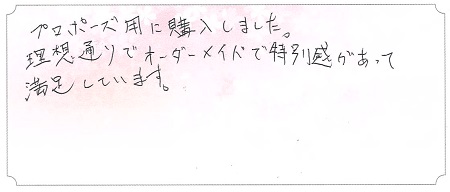 プロポーズ用に購入しました。
理想通りでオーダーメイドで特別感があって
満足しています。